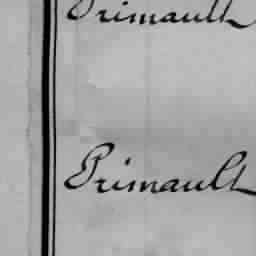 Primault
Primault